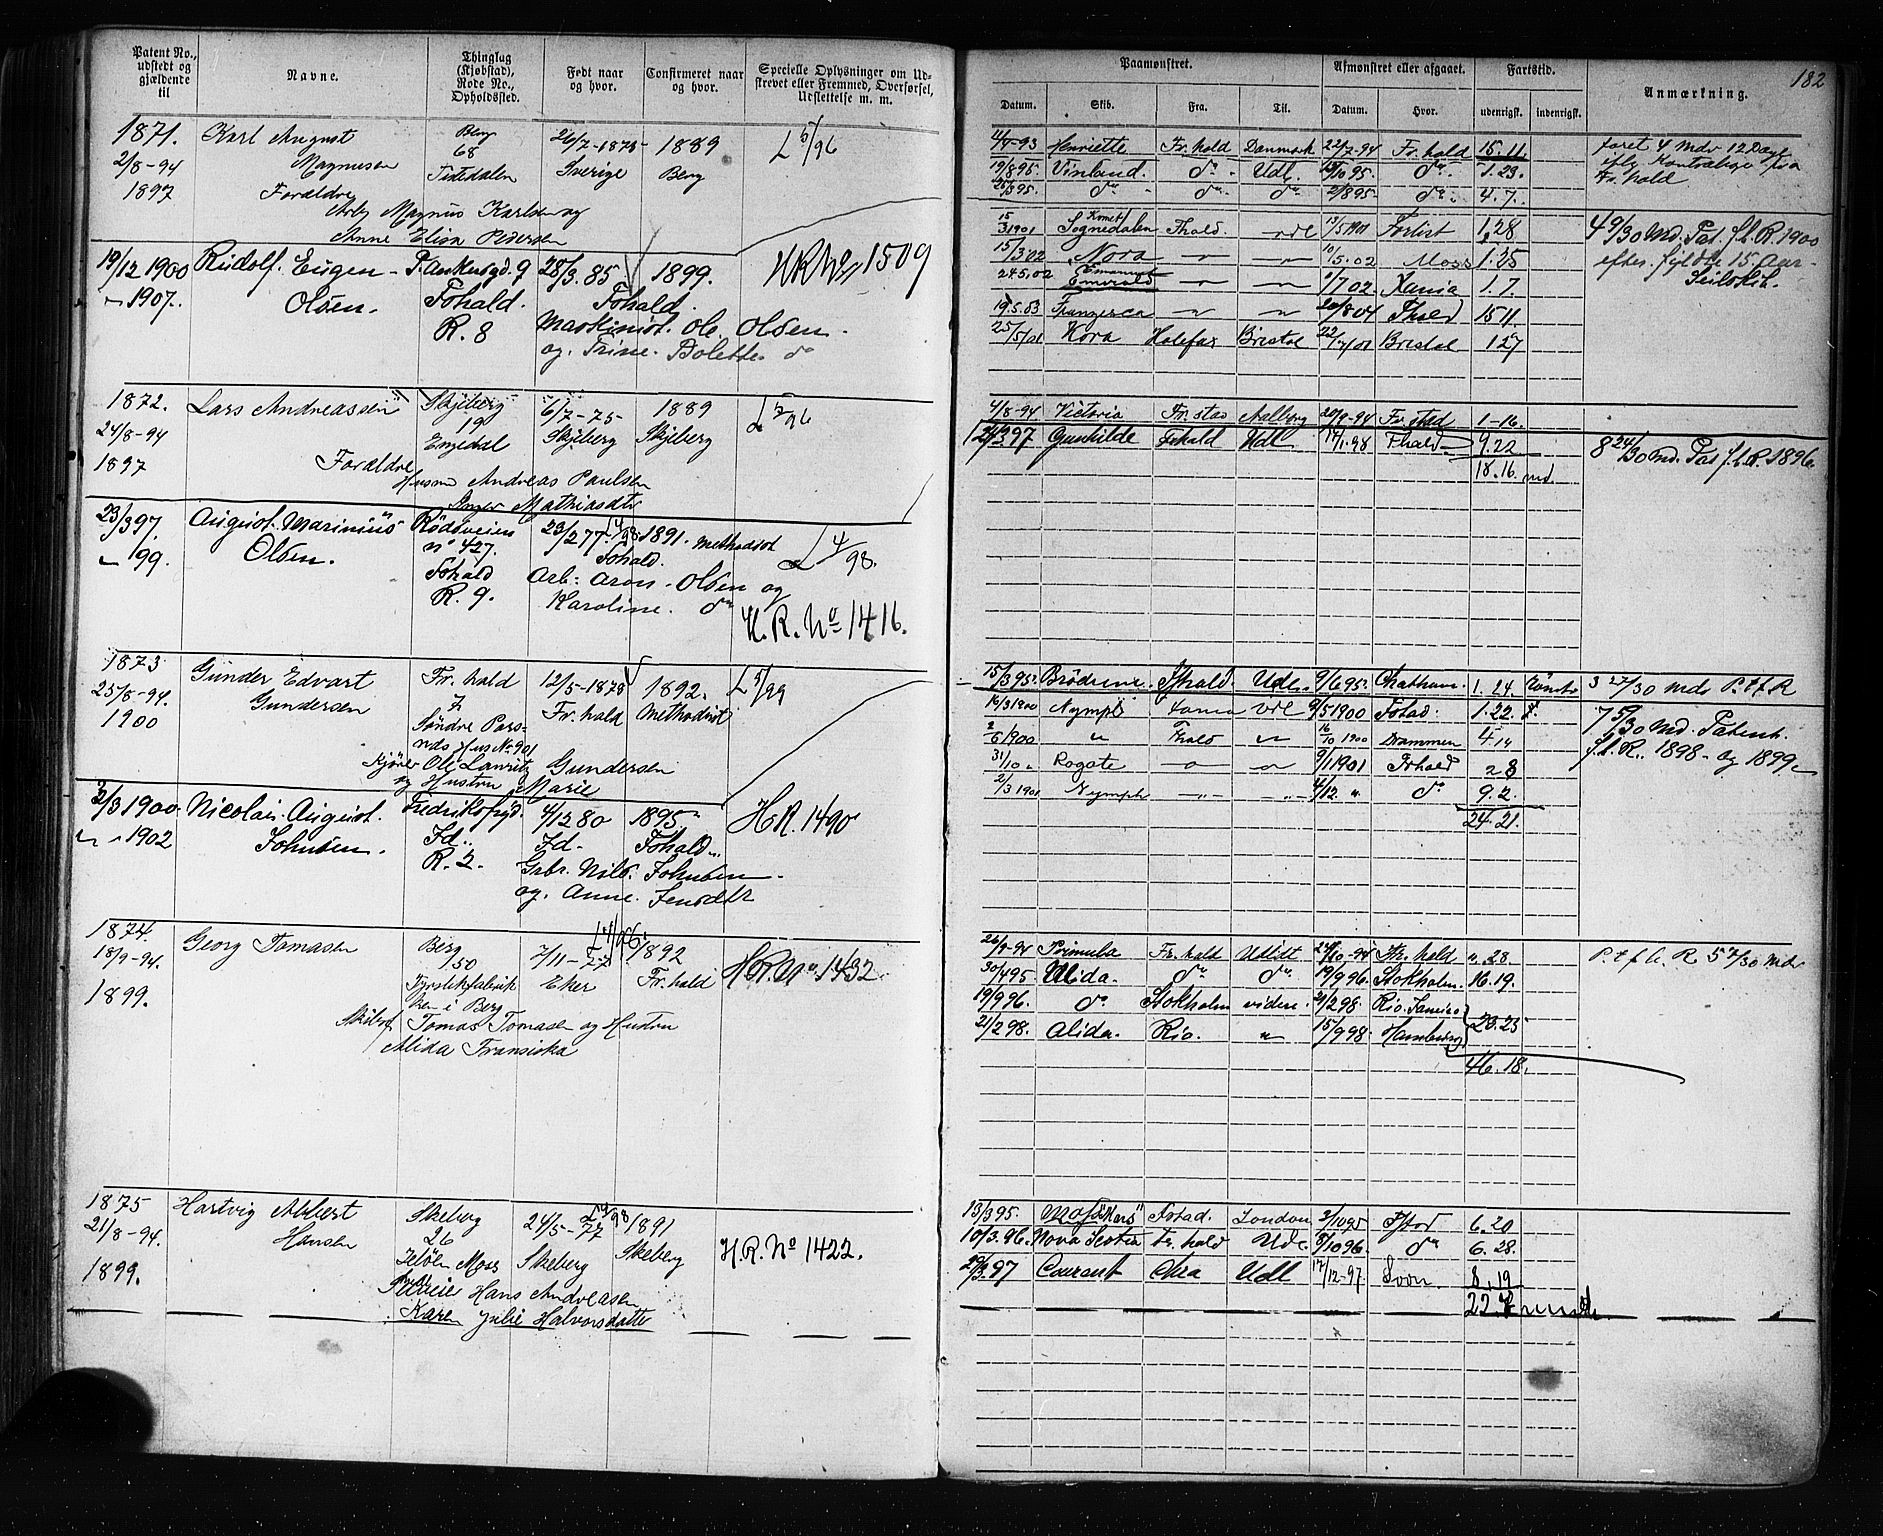 Patent No., udstedt og gjældende til
Navne.
Thinglag (Kjøbstad), Rode No., Opholdssted.
Født naar og hvor.
Confirmeret naar og hvor.
Specielle Oplysninger om Udstrevet eller Fremmed, Overførsel, Udslettelse m. m.
Paamønstret.
Afmønstret eller afgaaet.
Fartstid.
Anmærkning.
182
Datum. Skib. Fra. Til. Datum. Hvor. udenrigsk. indenrigsk.
1871. Karl August Berg 26/7-1878 1889 L 5/96
2/8-94 Magnusen 68 Sverige Berg
1897 Forældre Tistedalen
Arb. Magnus Karlsen og
Anne Elisa Pedersen
4/4-93 Henriette Fr.hald Danmark 22/2-94 Fr.hald 15.11.
19/8 95. Vinland. do Udl. 10/10 95. do 1.23.
do do do 2/8 95 do 4.7.
faret 4 Mdr 12 Dage
Fr.hald
19/12 1900 Rudolf. Eugen P. Ankersgd. 9 28/3. 85 1899. H.R. No 1509
1907. Olsen. Fshald. Fshald.
R. 8 Maskinist. Ole Olsen
og. Trine. Bolette do
15/3 1901 Komet Sognedalen Fhald udl 13/5 1901 1.28
15/3 02 Nora 10/5.02 Moss 1.25
24.5.02 Emerald 1/7 02 Xania 1.7.
19.5.03 Franzesca 20/8 04 Fhald 15 11.
25/5/01 Kora Halefax Bristol 22/7/01 Bristol 1 27
4 9/30 Md. Pat. f.l. R. 1900
efter fyldte 15 Aar
Seilskib.
1872. Lars Andreassen Skjeberg 6/7-75 1889 L 5/96
24/8-94 19 Skjeberg Skjeberg
1897 Engedal
Forældre
Husm Andreas Paulsen
Inger Mathiasdtr
4/8-94 Victoria Fr.stad Aalborg 20/9-94 Fr.stad 1-16.
24/3 97 Gunhilde Frhald Udl 14/1.98 Fhald 9.22
18.16. md.
8 24/30 Md. Pat f.l.R. 1896.
23/3 97. August. Marinius Rödsveien 23/2 77. L 4/98 1891. Methodist L 4/98.
99. Olsen. no 427. Fshald.
Fshald Arb: Aron. Olsen og
R. 9. Karoline. do
H.R. No 1416.
1873 Gunder Edvart Fr.hald 12/5-1878 1892. L 5/99
25/8-94. Gundersen 7 Fr.hald Methodist
1900 Söndre Pars-
nds Hus No 901
Kjörer Ole Lauritz Gundersen
og Hustru Marie
15/3 95. Brödrene Fhald. Udl. 9/6 95. Chatham. 1.24.
10/3 1900 Nymph Udl 9/5 1900 Fshald. 1.22.
2/6 1900 Fhald 16/10 1900 Drammen 4.14
31/10 Rogate 9/1 1901 Frhald 2 8
2/3 1901 Nymph 4/12. do 9.2.
24.21.
3 27/30 mdr P. f. f R
7 5/30 Md. Patent.
f.l. R. 1898 og 1899
2/3 1900 Nicolai. August. Fredriksfryd. 4/12 80 1895 H.R. 1490
1902 Johnsen. Id. Id. Fshald.
R. 2. Grbr. Nils. Johnsen
og. Anne. Jensdtr
1874. Georg Tomasen Berg 7/11-77 1892 H.R. No 1432
18/9-94. 150 Eker Fr.hald
1899. Fyrstikfabrik
ken i Berg
Skibsf Tomas Tomasen og Hustru
Alida Fransiska
26/9-94 Primula Fr.hald Udlidt 24/10-94 Fr.hald 28.
30/4 95 Alida. do do 19/9 96. Stokholm. 16.19.
19/9 96. do Stokholm viden 21/2 98. Rio Janeiro
21/2 98. Alida. Rio. 15/9 98. Hamburg 23.25
46.18.
P. f. f. A. R 5 7/30 Mdr
1875 Hartvig Albert Skeberg 24/5-77 1891
21/8-94. Hansen 26 Skeberg Skeberg H.R. No 1422.
1899. Jelöen Moss
Hans Andreasen
Karen Julie Halvorsdatter
15/3 95. Fstad. London 3/10 95 Fstad 6.20
10/3.96. Nova Scotia Fr.hald Udl. 8/10 96. do 6.28.
3.97 Courant Chra Udl 17/12-97. 8.19
22.